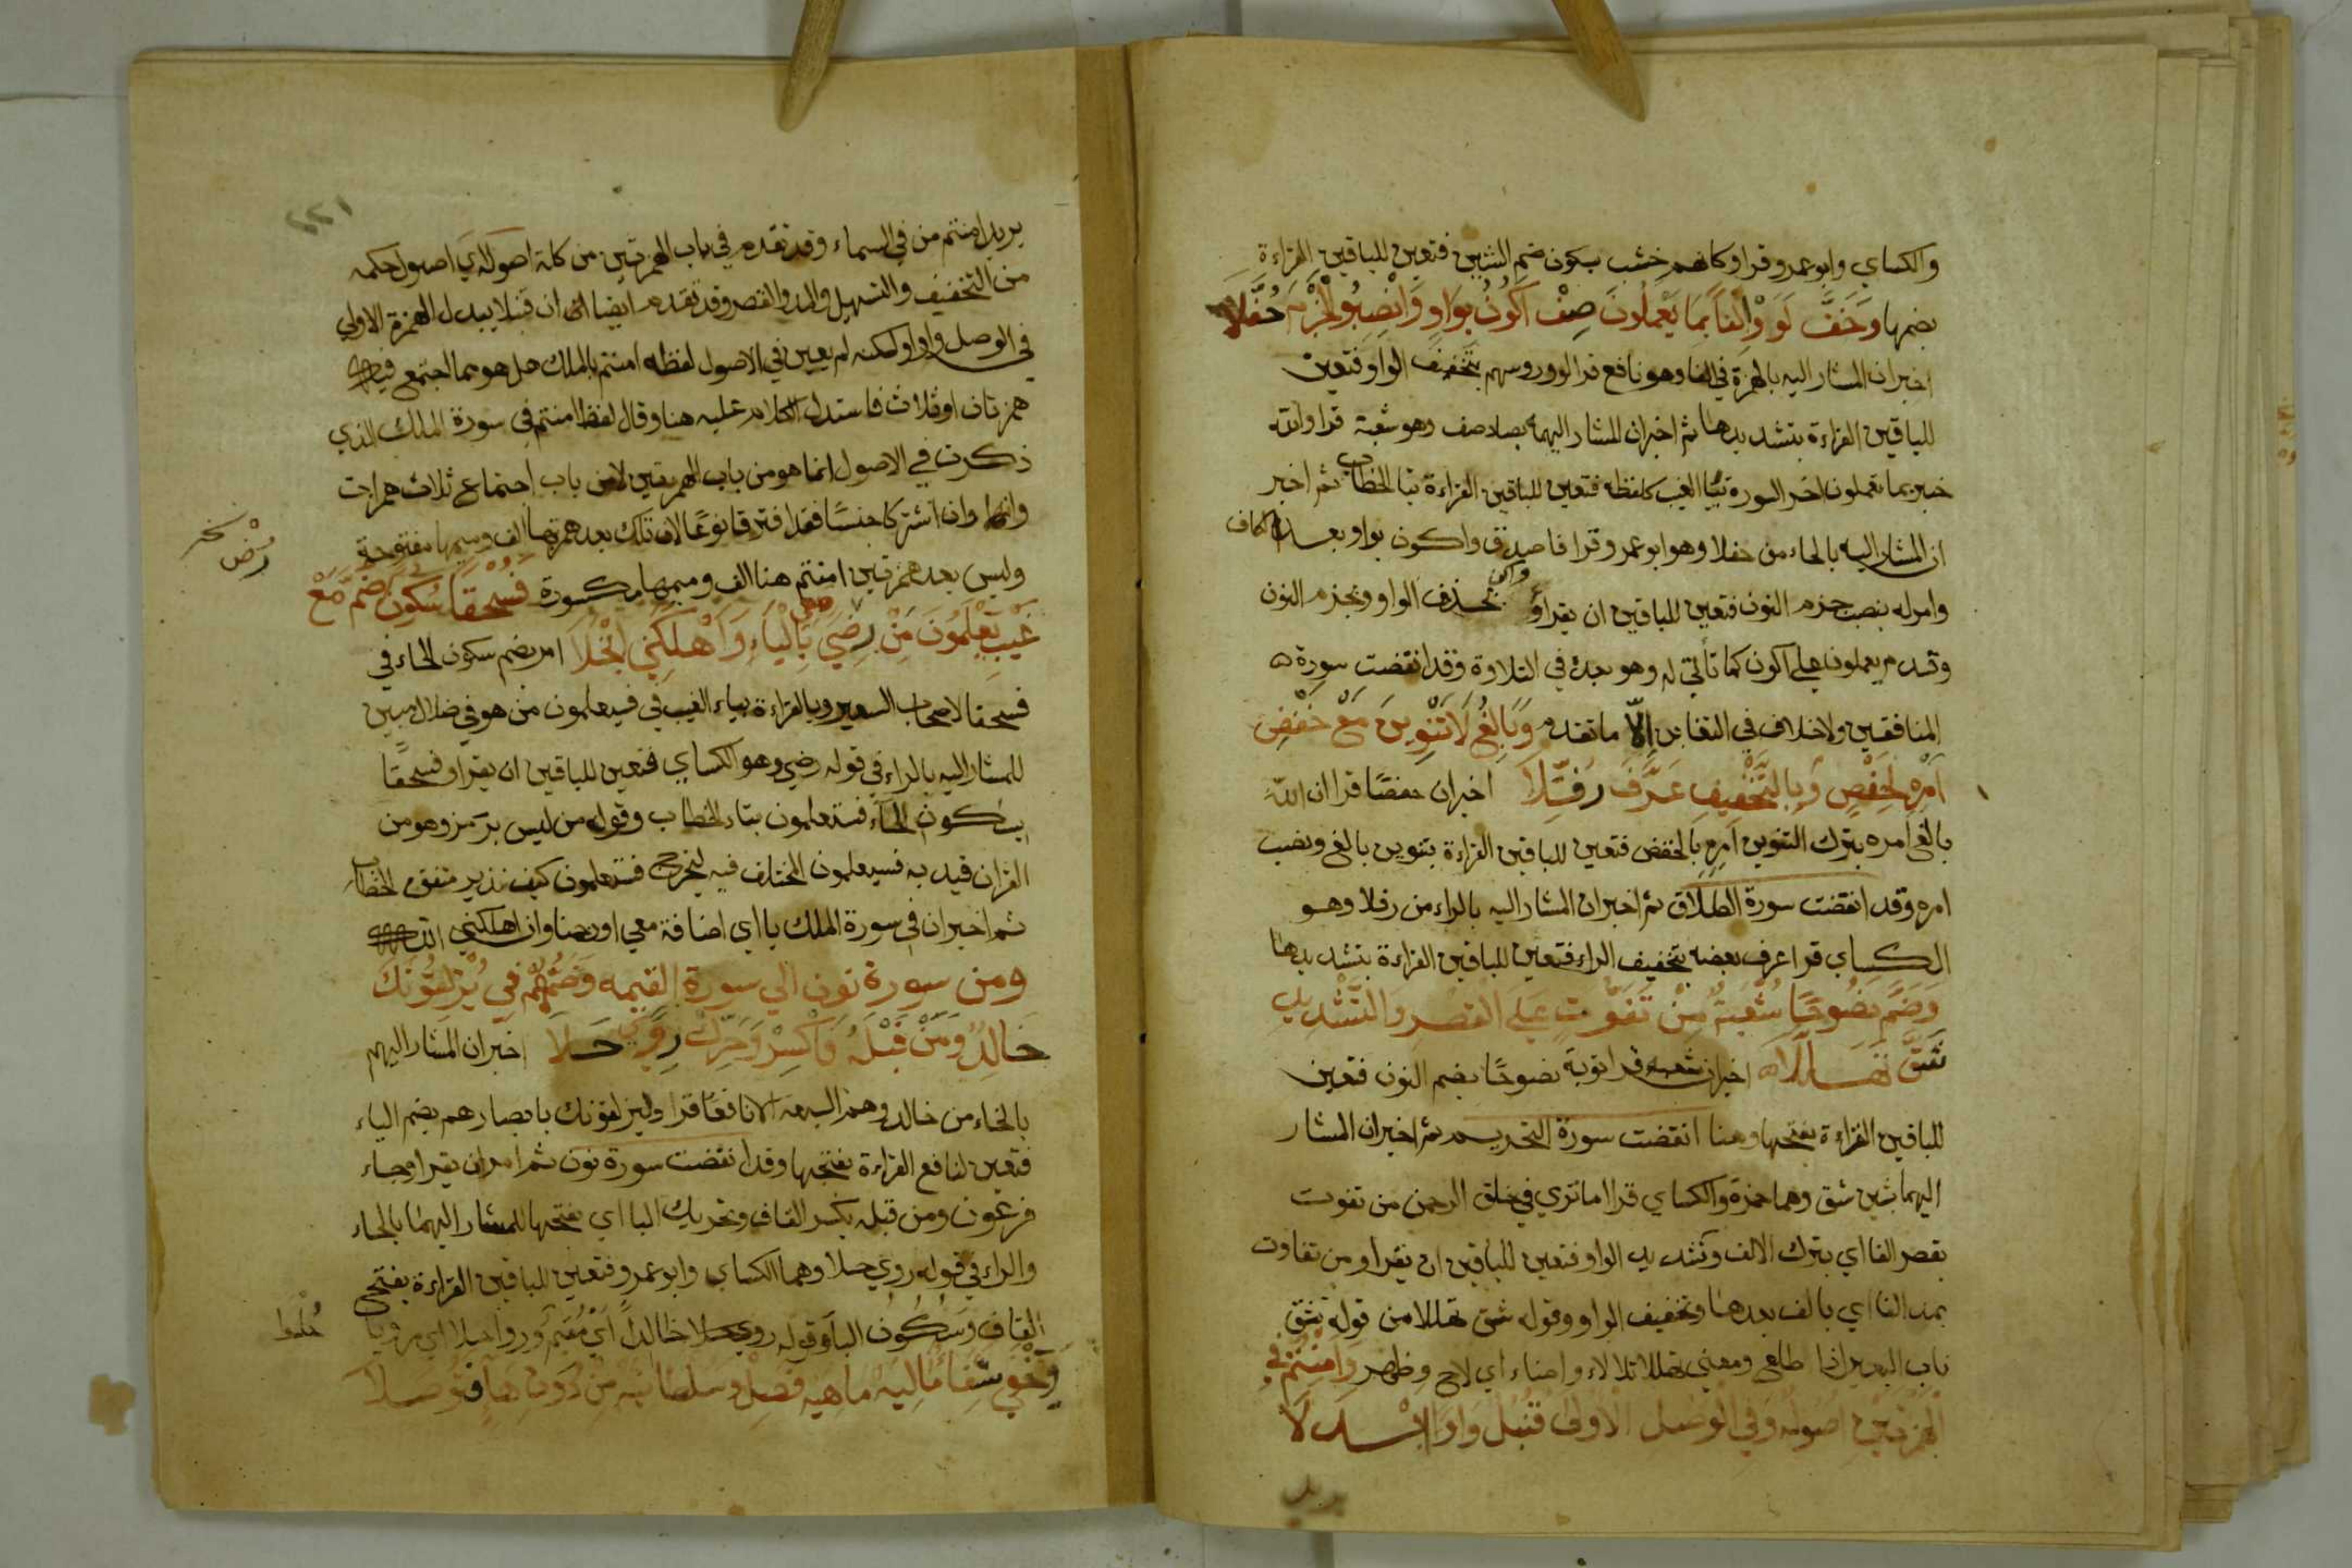 والكساي وابو عمرو قراوا كانهم خشب بسكون ضم الشين فتعين للباقين القراءة
بضمها وَخَفَّ لَوَوْا إِلْفًا بِمَا يَعْمَلُونَ صِفْ أَكُونَ بِوَاوٍ وَانْصِبُوا الْجَزْمَ حُفَّلَا
اخبر ان المشار اليه بالهمزة في الفا وهو نافع قرا لووا روسهم بتخفيف الواو فتعين
للباقين القراءة بتشديدها ثم اخبر ان المشار اليهما بصاد صف وهو شعبة قرا والله
خبير بما تعملون اخر السورة بيا الغيب كلفظه فتعين للباقين القراءة بتا الخطاب ثم اخبر
ان المشار اليه بالحاء من حفلا وهو ابو عمرو قرا فاصدق واكون بواو بعد الكاف
وامر له بنصب جزم النون فتعين للباقين ان يقراوا واكن بحذف الواو وبجزم النون
وقدم يعملون على اكون كما تأتي له وهو بعده في التلاوة وقد انقضت سورة
المنافقين ولا خلاف في التغابن إلّا ما تقدم وَبَالِغُ لَا تَنْوِينَ مَعْ خَفْضِ
أَمْرِهِ لِحَفْصٍ وَبِالتَّخْفِيفِ عَرَّفَ رُفِّلَا اخبر ان حفصا قرا ان الله
بالغ امره بترك التنوين امرِهِ بالخفض فتعين للباقين القراءة بتنوين بالغ ونصب
امره وقد انقضت سورة الطلاق ثم اخبر ان المشار اليه بالراء من رفلا وهو
الكساي قرا عرف بعضه بتخفيف الراء فتعين للباقين القراءة بتشديدها
وَضَمَّ نَصُوحًا شُعْبَةٌ مِنْ تَفَوُّتٍ عَلَى الْقَصْرِ وَالتَّشْدِيدِ
شَقَّ تَهَلُّلَا اخبر ان شعبه قرا توبة نصوحًا بضم النون فتعين
للباقين القراءة بفتحها وهنا انقضت سورة التحريم ثم اخبر ان المشار
اليهما بشين شق وهما حمزة والكساي قرا ما ترى في خلق الرحمن من تفوت
بقصر الفا اي بترك الالف وتشديد الواو فتعين للباقين ان يقراوا من تفاوت
بمد الفا اي بالف بعدها وتخفيف الواو وقوله شق تهللا من قوله شق
ناب البعير اذا طلع ومعنى تهللا تلالا واضاء اي لاح وظهر وَآمَنْتُمُ فِي
الْهَمْزَتَيْنِ أُصُولُهُ وَفِي الْوَصْلِ الْأُولَى قُنْبُلٌ وَاوًا ابْدَلَا
يريد
يريد امنتم من في السماء وقد تقدم في باب الهمزتين من كلمة اصوله اي اصول حكمه
من التخفيف والتسهيل والمد والقصر وقد تقدم ايضا ان قنبلا يبدل الهمزة الاولى
في الوصل واوا ولكنه لم يعين في الاصول لفظه امنتم بالملك هل هو مما اجتمع فيه
همزتان او ثلاث فاستدل الكلام عليه هنا وقال لفظ امنتم في سورة الملك الذي
ذكرت في الاصول انما هو من باب الهمزتين لا من باب اجتماع ثلاث همزات
وانها وان اشتركا جنسًا فقد افترقا نوعًا لان تلك بعد همزتها الف وميمها مفتوحة
وليس بعد همزتين امنتم هنا الف وميمها مكسورة فَسُحْقًا سُكُونَ ضُمَّ مَعْ
غَيْبِ يَعْلَمُونَ مَنْ رُضِيَ بِالْيَاءِ وَأَهْلَكَنِي انْجَلَا امر بضم سكون الحاء في
فسحقا لاصحاب السعير وبالقراءة بياء الغيب في فسيعلمون من هو في ضلال مبين
للمشار اليه بالراء في قوله رضي وهو الكساي فتعين للباقين ان يقراوا فسحقًا
بسكون الحاء فستعلمون بتاء الخطاب وقوله من ليس برمز وهو من
القران قيد به فسيعلمون المختلف فيه ليخرج فستعلمون كيف نذير متفق الخطاب
ثم اخبر ان في سورة الملك يا اي اضافة معي او رحمنا وان اهلكني الله
ومن سورة نون الى سورة القيمه وَضَمُّهُمْ فِي يُزْلِقُونَكَ
خَالِدٌ وَمَنْ قَبْلَهُ فَاكْسِرْ وَحَرِّكْ رِوًى حَلَا اخبر ان المشار اليهم
بالخاء من خالد وهم السبعة الا نافعًا قرا وليزلقونك بابصارهم بضم الياء
فتعين لنافع القراءة بفتحها وقد انقضت سورة نون ثم امر ان يقرا وجاء
فرعون ومن قبله بكسر القاف وتحريك البا اي بفتحها للمشار اليهما بالحاء
والراء في قوله روى حلا وهما الكساي وابو عمرو فتعين للباقين القراءة بفتح
القاف وسكون البا وقوله روى حلا خالد اي مقيم وروا حلا اي مرويا
وَيَخْفَى شِفَاءً مَالِيَهْ مَاهِيَهْ فَصِلْ وَسُلْطَانِيَهْ مِنْ دُونِ هَاءٍ فَتُوصَلَا
رُضْ نخ
حلوا